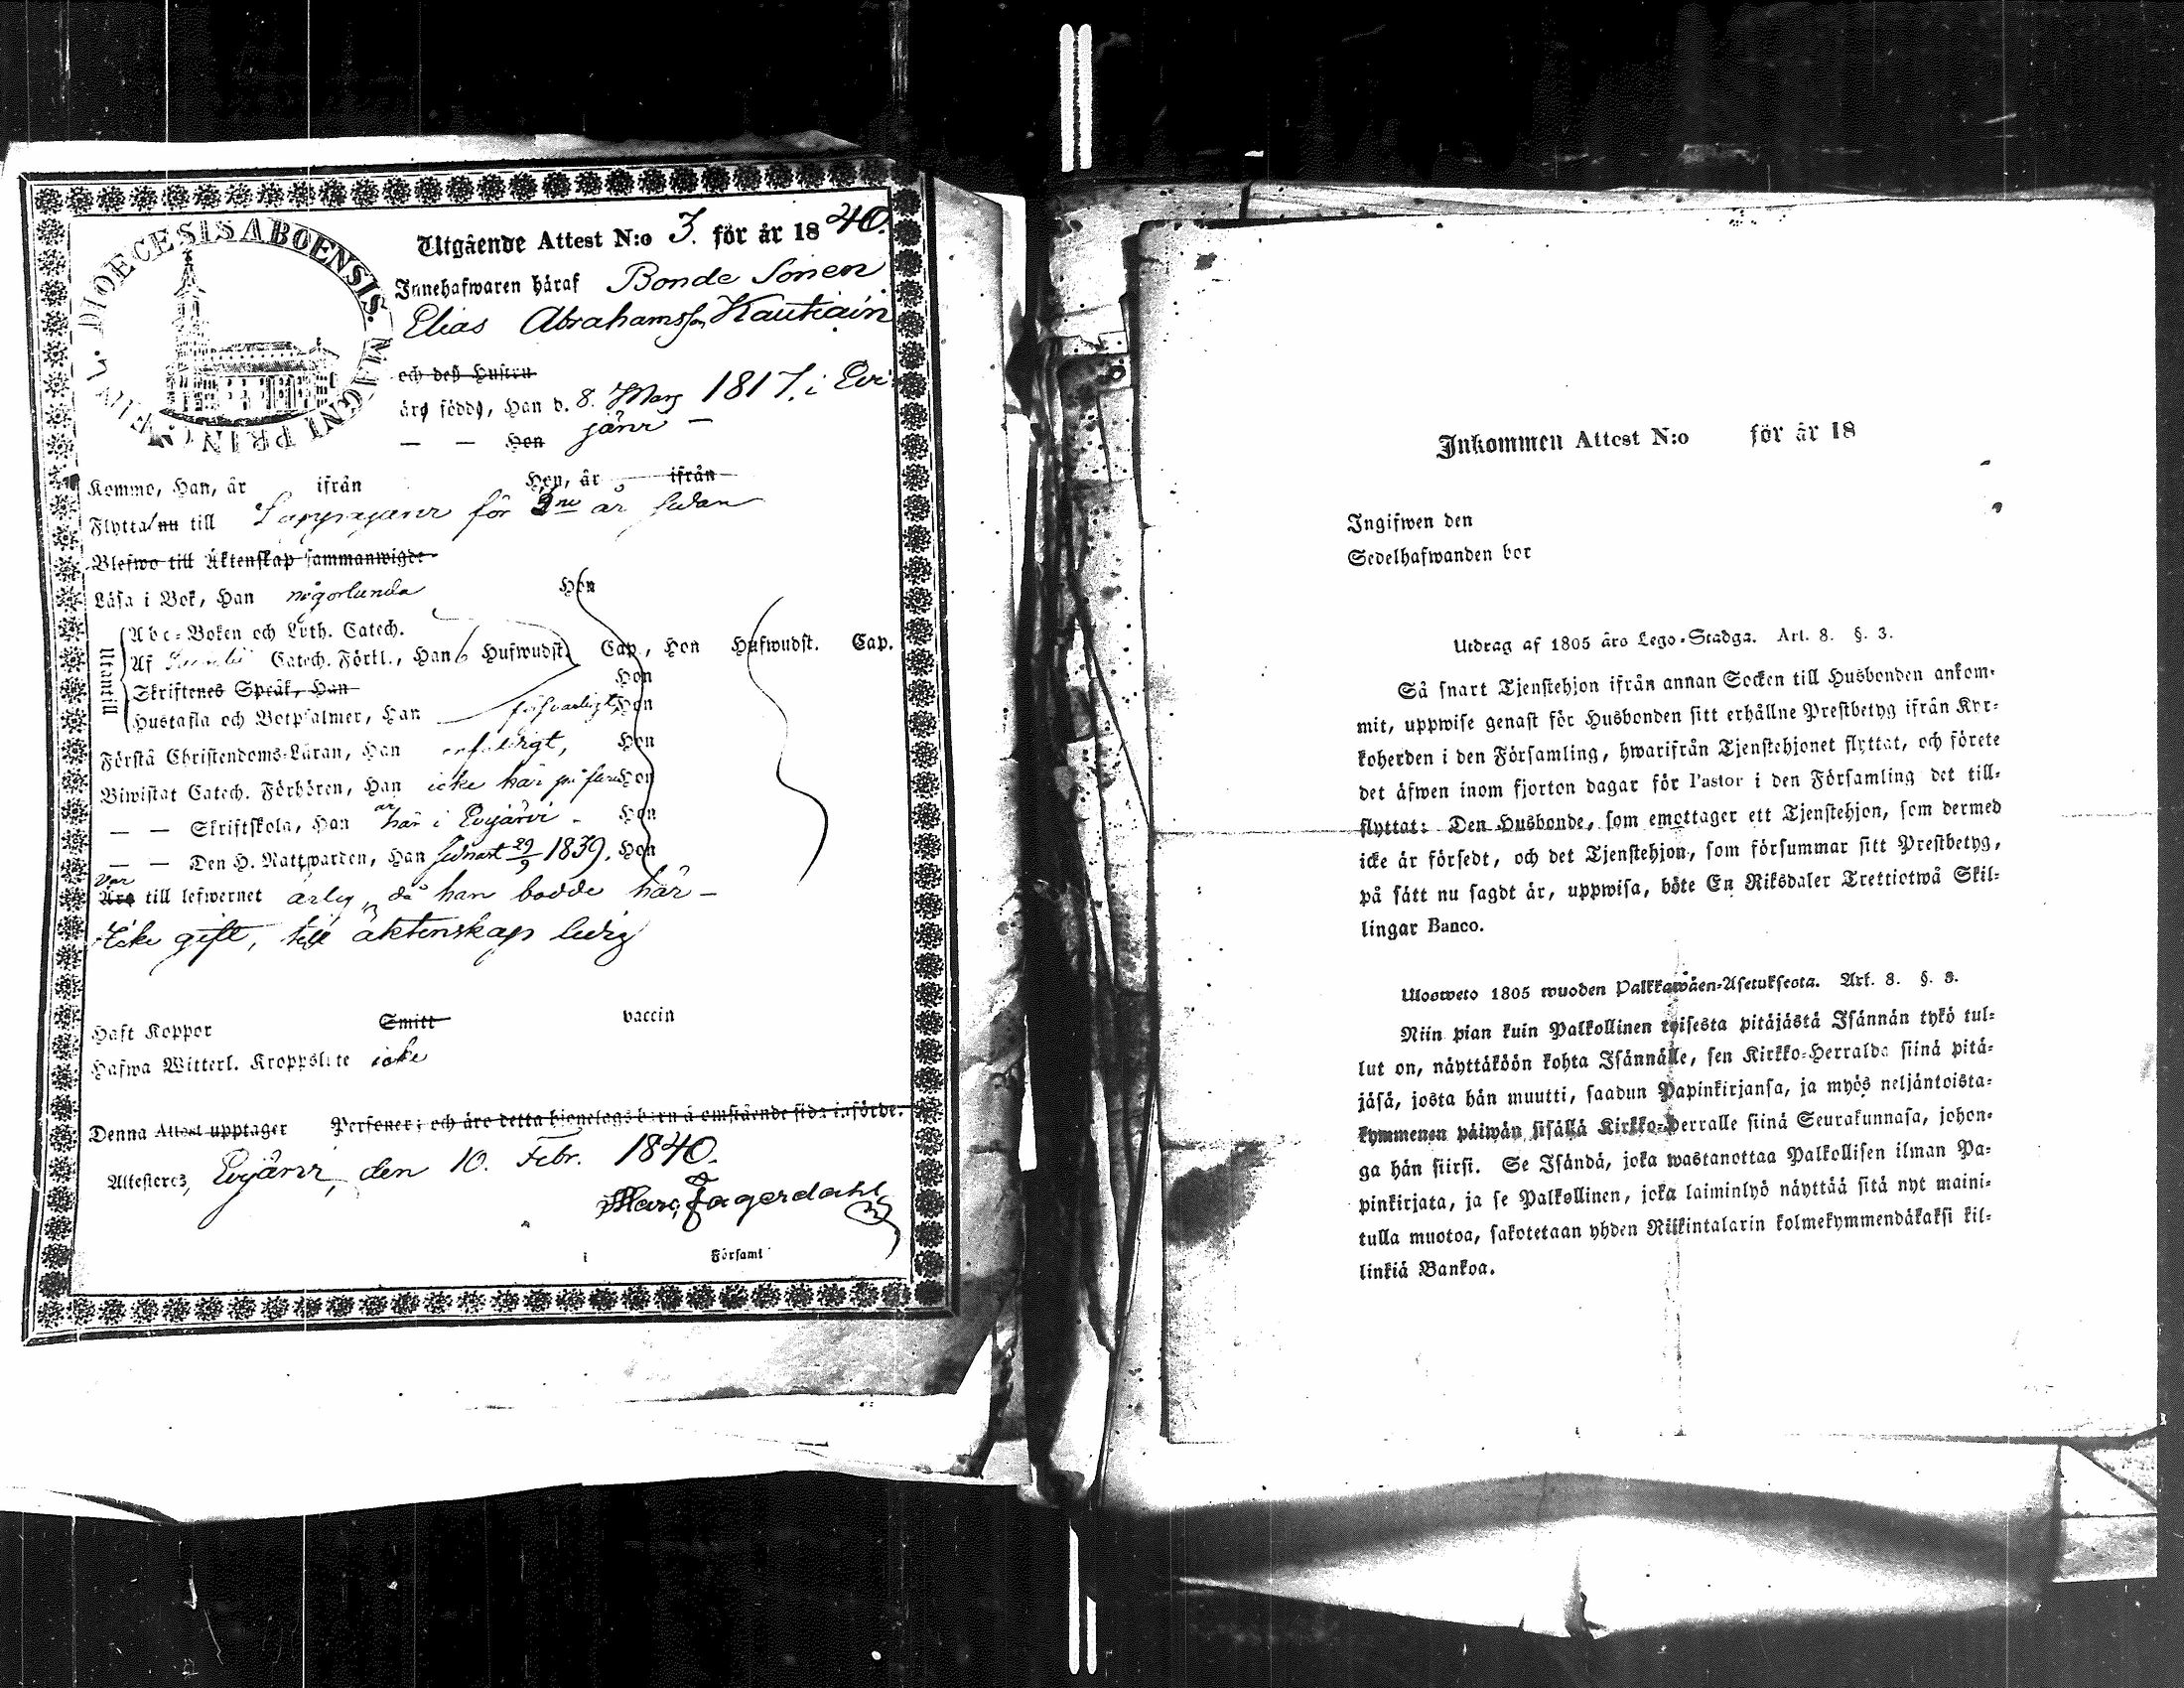 DIOECESIS ABOENSIS. MAGNI PRINC. FINL.
Utgående Attest N:o 3. för år 1840.
Innehafwaren håraf Bonde Sonen
Elias Abrahamsson Kautiain
och deß Hustru
äro födde, Han d. 8. Mars 1817. i Evi-
— — Hon järvi —
Komme, Han, år ifrån Hon, år ifrån
Flytta nu till Lappajärvi för 2ne år sedan
Blefwo till Äktenskap sammanwigde
Läsa i Bok, Han någorlunda Hon
Utantill
Abc-Boken och Luth. Catech.
Af Catech. Förkl., Han 6 Hufwudst. Cap., Hon Hufwudst. Cap.
Skriftenes Språk, Han Hon
Hustafla och Botpsalmer, Han försvarligt, Hon
Förstå Christendoms-Läran, Han enfaldigt, Hon
Biwistat Catech. Förhören, Han icke här på Hon
— — Skriftskola, Han här i Evijärvi - Hon
— — Den H. Nattwarden, Han sednast 29/9 1839, Hon
var
Äro till lefwernet ärlig, då han bodde här —
Icke gift, till äktenskap ledig
Haft Koppor Smitt vaccin
Hafwa Witterl. Kroppslyte icke
Denna Attest upptager Personer; och äro detta hjonelags barn å omstående sida införde.
Attesteres, Evijärvi, den 10. Febr. 1840.
Fagerdahl
i Församl
Inkommen Attest N:o för år 18
Ingifwen den
Sedelhafwanden bor
Utdrag af 1805 års Lego-Stadga. Art. 8. §. 3.
Så snart Tjenstehjon ifrån annan Socken till Husbonden ankom-
mit, uppwise genast för Husbonden sitt erhållne Prestbetyg ifrån Kyr-
koherden i den Församling, hwarifrån Tjenstehjonet flyttat, och förete
det äfwen inom fjorton dagar för Pastor i den Församling det till-
flyttat: Den Husbonde, som emottager ett Tjenstehjon, som dermed
icke är försedt, och det Tjenstehjon, som försummar sitt Prestbetyg,
på sätt nu sagdt är, uppwisa, böte En Riksdaler Trettiotwå Skil-
lingar Banco.
Ulosweto 1805 wuoden Palkkawäen-Asetuksesta. Art. 8. §. 3.
Niin pian kuin Palkollinen toisesta pitäjästä Isännän tykö tul-
lut on, näyttäköön kohta Isännälle, sen Kirkko-Herralda siinä pitä-
jäsä, josta hän muutti, saadun Papinkirjansa, ja myös neljäntoista-
kymmenen päiwän sisällä Kirkko-Herralle siinä Seurakunnasa, johon-
ga hän siirsi. Se Isändä, joka wastanottaa Palkollisen ilman Pa-
pinkirjata, ja se Palkollinen, joka laiminlyö näyttää sitä nyt maini-
tulla muotoa, sakotetaan yhden Riikintalarin kolmekymmendäkaksi kil-
linkiä Bankoa.